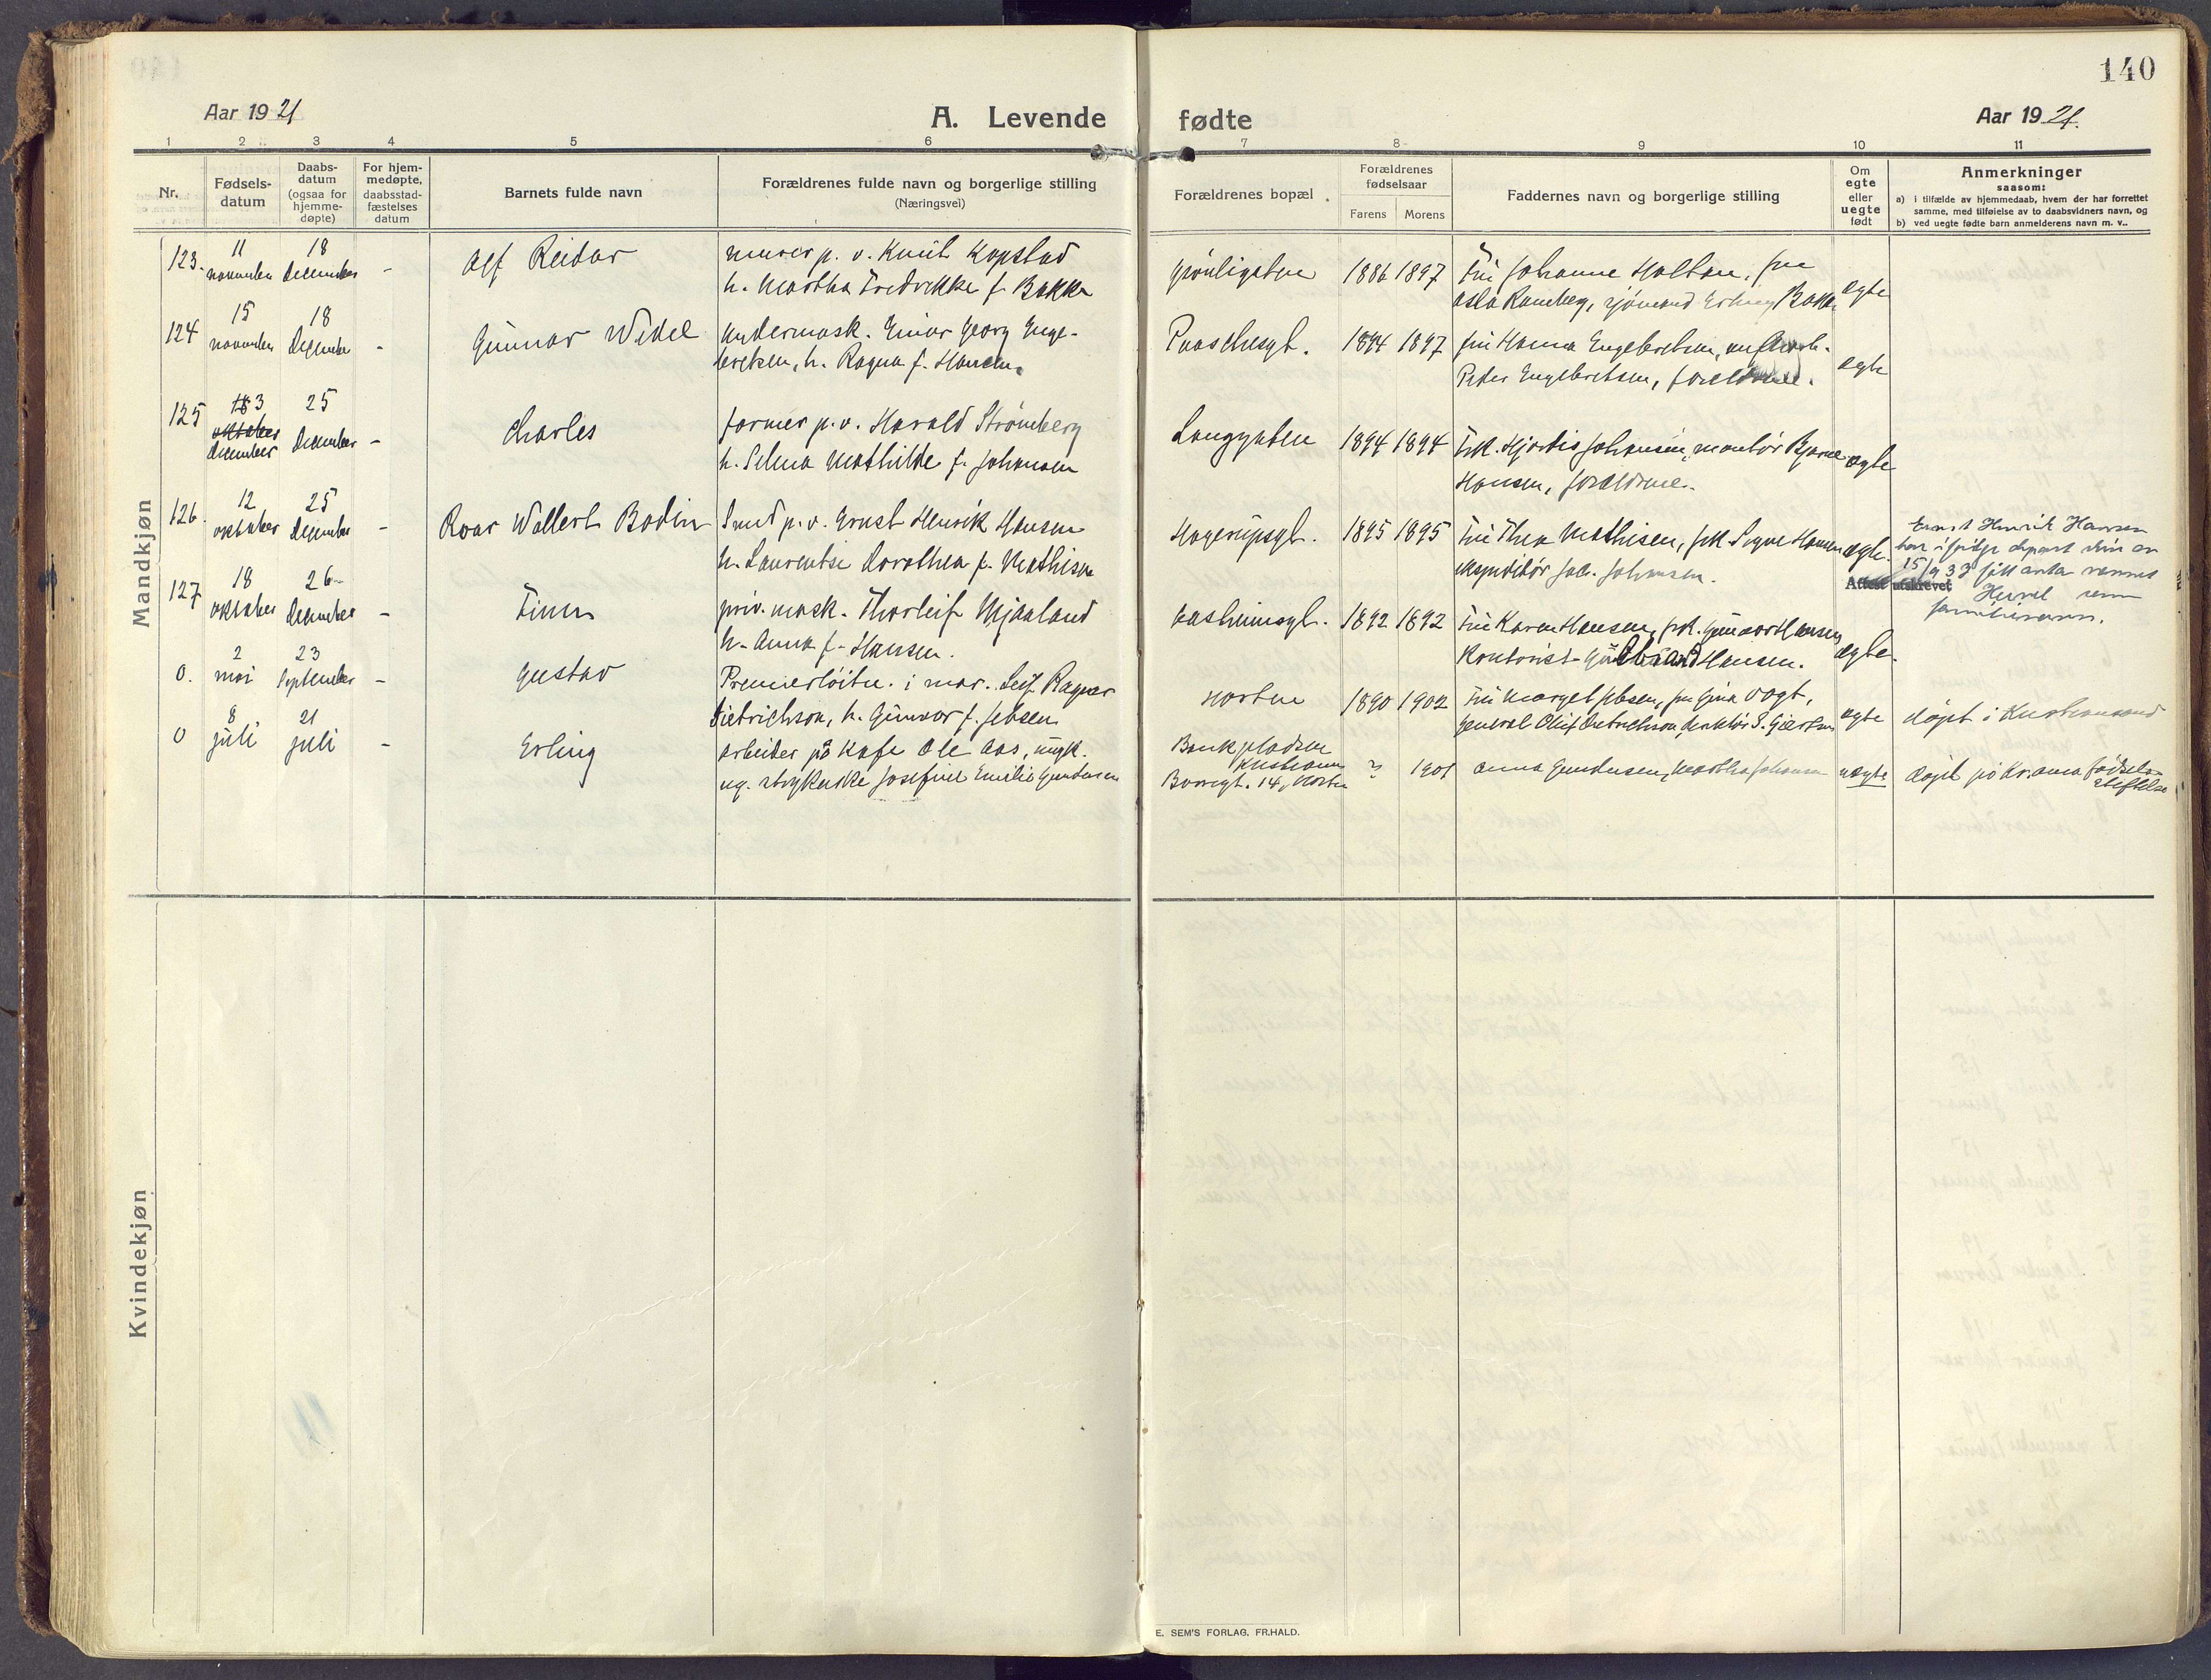 140
Aar 1921
A. Levende fødte
Aar 1921.
1 2 3 4 5 6 7 8 9 10 11
Nr.
Fødsels-
datum
Daabs-
datum
(ogsaa for
hjemme-
døpte)
For hjem-
medøpte,
daabsstad-
fæstelses
datum
Barnets fulde navn
Forældrenes fulde navn og borgerlige stilling
(Næringsvei)
Forældrenes bopæl
Forældrenes
fødselsaar
Farens Morens
Faddernes navn og borgerlige stilling
Om
egte
eller
uegte
født
Anmerkninger
saasom:
a) i tilfælde av hjemmedaab, hvem der har forrettet
samme, med tilføielse av to daabsvidners navn, og
b) ved uegte fødte barn anmelderens navn m. v..
Mandkjøn
123. 11 november 18 December - Alf Reidar
murer p. v. Knut Kopstad
h. Martha Fredrikke f. Bakke
1886 1897
Fru Johanne Holtan, fru
Asta Ramberg, sjømand Erling Bakke
egte
124 15 november 18 December - Gunnar Wedel
Undermask. Einar Georg Enge-
bretsen, h. Ragna f. Hansen.
Paaschesgt. 1894 1897
fru Hanna Engebretsen,
Peder Engebretsen, forældrene.
egte
125 18 3 oktober December 25 December - Charles
former p. v. Harald Strømberg
h. Selma Mathilde f. Johansen
Langgaten 1894 1894
Frk. Hjørdis Johansen, montør Bjarne
Hansen, forældrene.
egte
126. 12 oktober 25 December - Roar Wallert Bodin
Smed p. v. Ernst Henrik Hansen
h. Laurentse Dorothea f. Mathisen
Hagerupsgt. 1895 1895
Fru Thea Mathisen, frk Signe Hansen
ekspeditør Joh. Johansen.
egte.
Ernst Henrik Hansen
har ifølge depart. skriv av
15/9 33 fått anta navnet
Attest utskrevet
Hurel som
familienavn.
127 18 oktober 26 December - Finn
priv. mask. Thorleif Mjaaland
h. Anna f. Hansen.
Aasheimsgt. 1892 1892
Fru Karen Hansen, frk. Gunvor Hansen,
Kontorist Gudbrand Hansen.
egte.
0. 2 mai 23 September - Gustav
Premierløitn. i mar. Leif Ragnar
Dietrichson, h. Gunvor f. Jebsen
Horten 1890 1902
Fru Margit Jebsen, fru Gina Vogt,
General Oluf Dietrichson, Direktør S. Gjertsen
egte
døpt i Kristiansand
0 8 juli 21 juli - Erling
arbeider på Kafe Ole Aas, ungk.
ug. strykerske Josefine Emilie Gundersen
Bankpladsen
Kristiania
14, Horten
? 1901
Anna Gundersen, Martha Johansen
uegte
døpt på Kr.ania fødsels-
stiftelse
Kvindekjøn
E. SEM'S FORLAG, FR.HALD.